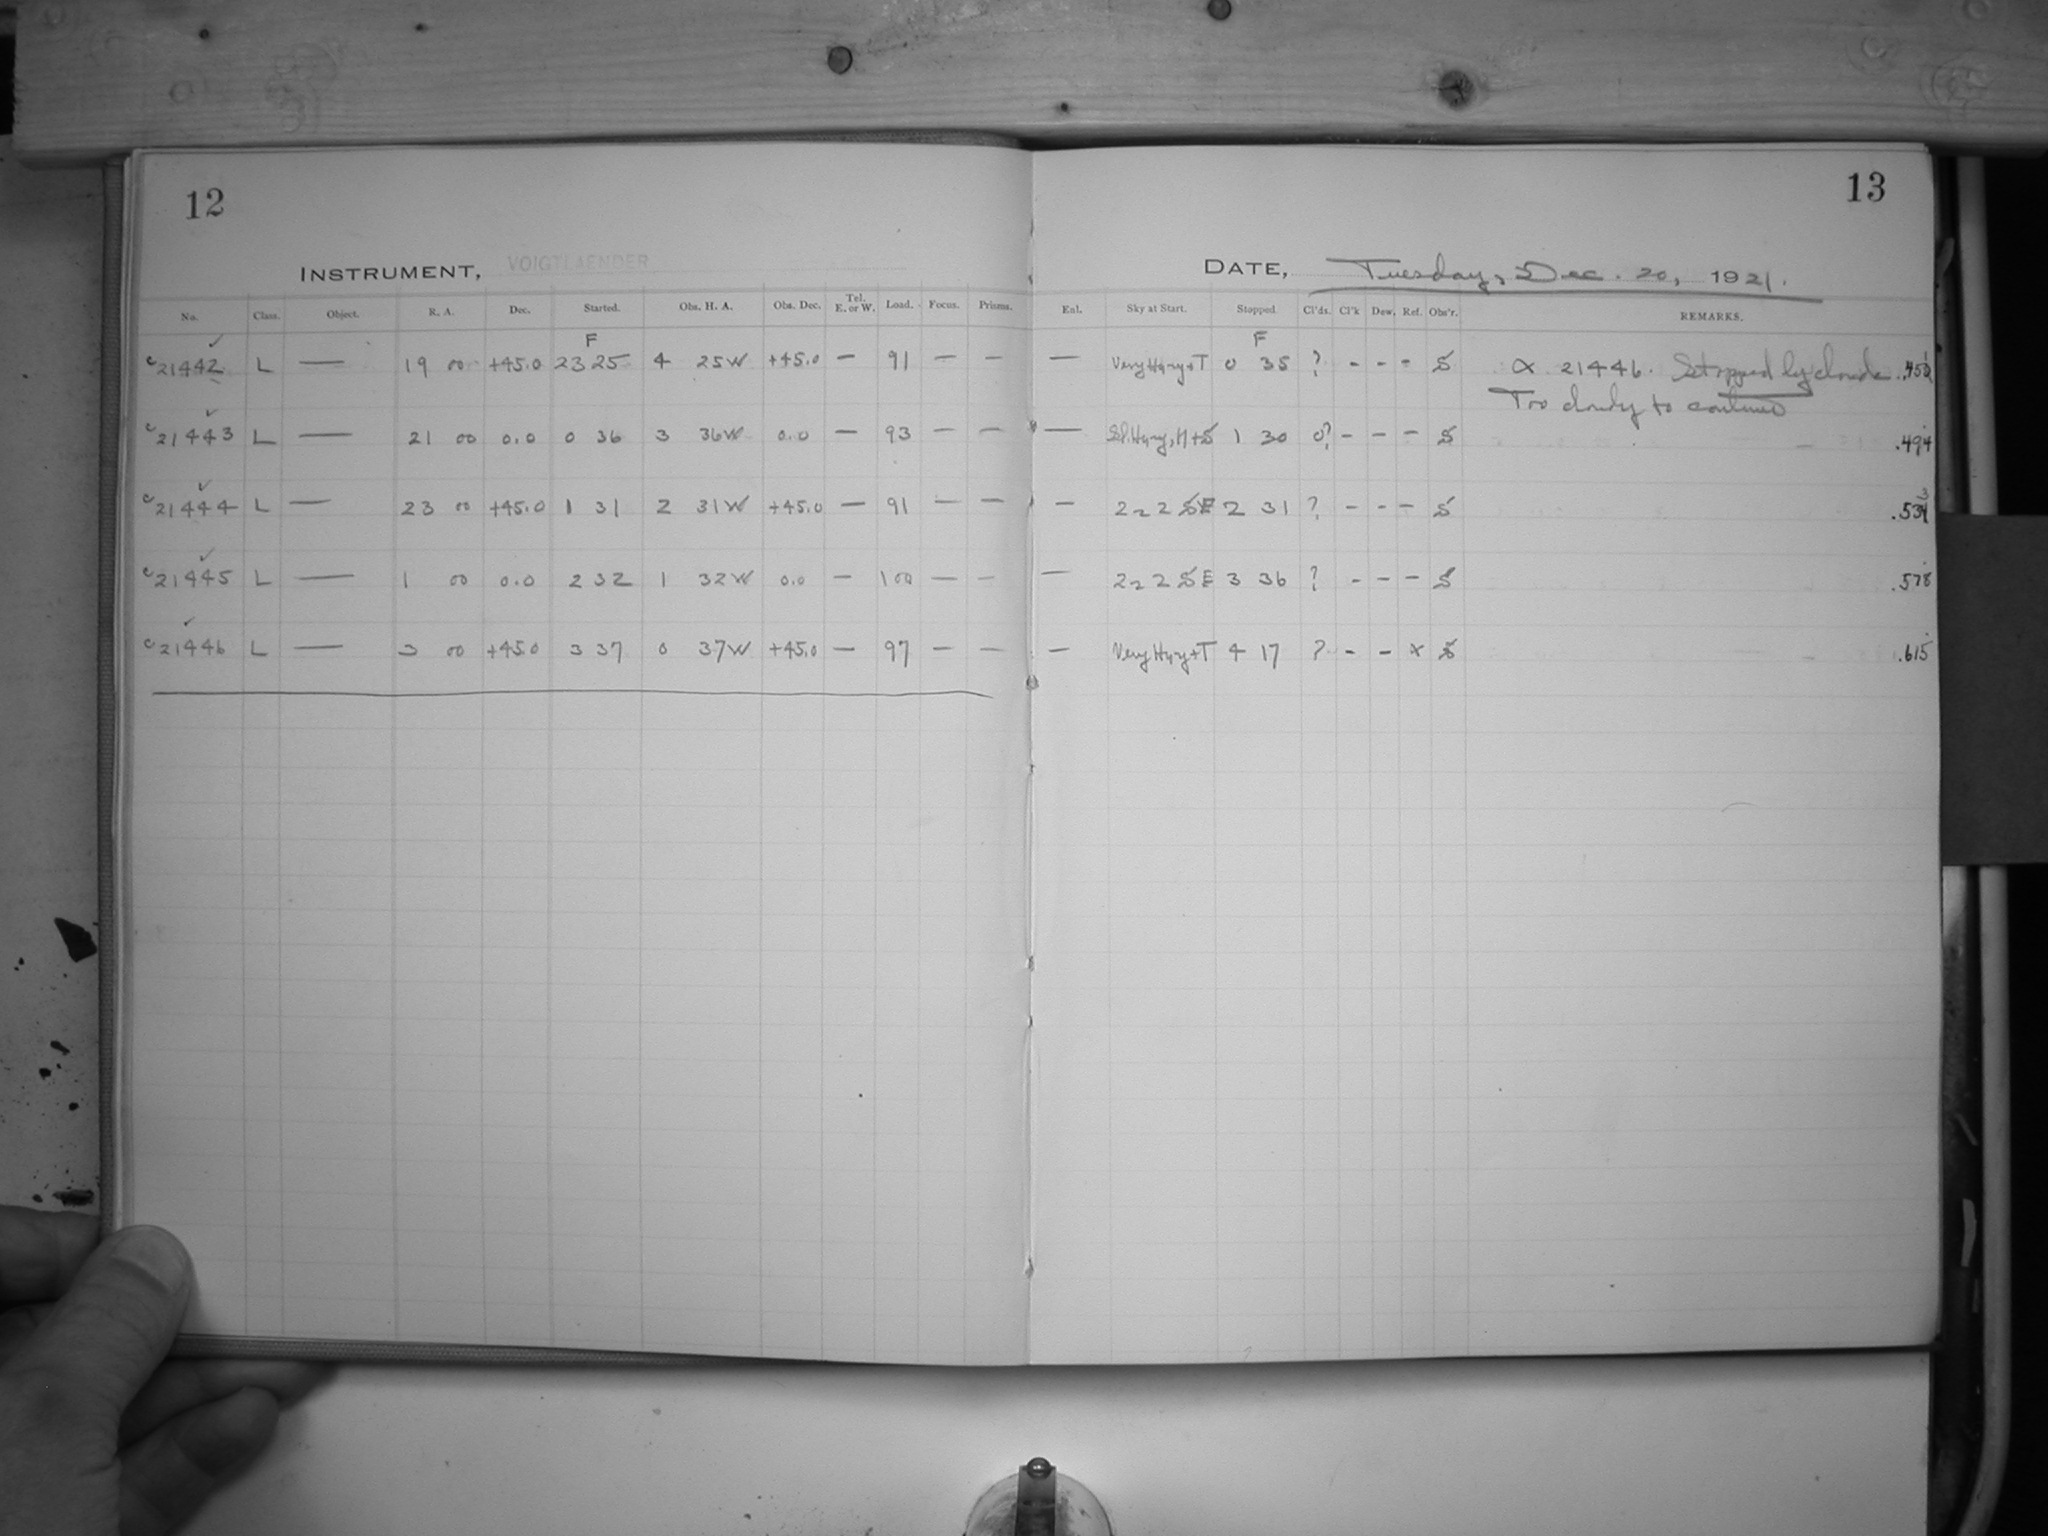 12
13
INSTRUMENT, VOIGTLAENDER
DATE, Tuesday, Dec. 20, 1921.
No. Class. Object. R. A. Dec. Started. Obs. H. A. Obs. Dec. Tel. E. or W. Load. Focus. Prisms. Enl. Sky at Start. Stopped Cl'ds. Cl'k Dew. Ref. Obs'r. REMARKS.
F F
c21442 L — 19 00 +45.0 23 25 4 25W +45.0 — 91 — — — Very Hazy+T 0 35 ? - - - S α 21446. Stopped by clouds.
Too cloudy to continue
c21443 L — 21 00 0.0 0 36 3 36W 0.0 — 93 — — — Sl. Hazy, M+S 1 30 0? - - - S .494
c21444 L — 23 00 +45.0 1 31 2 31W +45.0 — 91 — — — 2 2 2 SE 2 31 ? - - - S
c21445 L — 1 00 0.0 2 32 1 32W 0.0 — 100 — — — 2 2 2 SE 3 36 ? - - - S .578
c21446 L — 3 00 +45.0 3 37 0 37W +45.0 — 97 — — — Very Hazy+T 4 17 ? - - x S .615